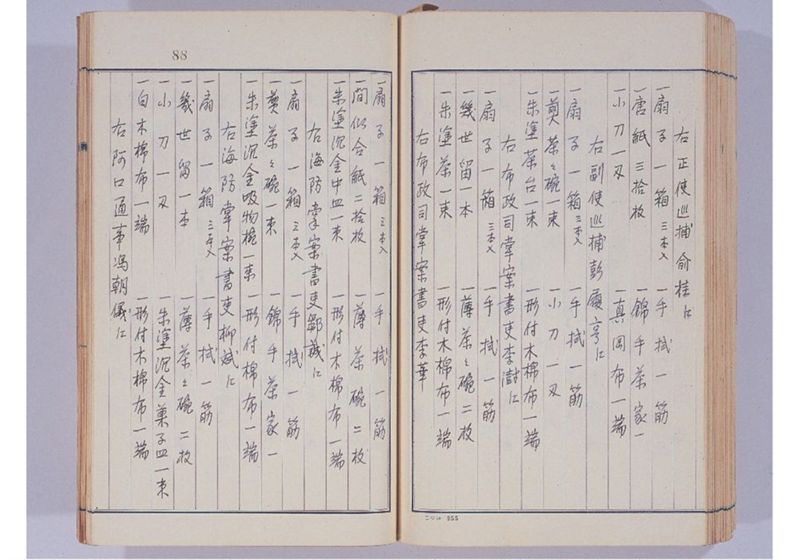 右正使巡捕俞桂に
一扇子一箱三本入 一手拭一筋
一唐紙三拾枚 一錦手茶家一
一小刀一刃 一真岡布一端
右副使巡捕彭履亨に
一扇子一箱三本入 一手拭一筋
一煎茶々碗一束 一小刀一刃
一朱塗茶台一束 一形付木棉布一端
右布政司掌案書吏李澍に
一扇子一箱三本入 一手拭一筋
一幾世留一本 一薄茶々碗二枚
一朱塗茶一束 一形付木棉布一端
右布政司掌案書吏李華
一扇子一箱三本入 一手拭一筋
一間似合紙二拾枚 一薄茶碗二枚
一朱塗沉金中皿一束 一形付木棉布一端
右海防掌案書吏鄒誠に
一扇子一箱三本入 一手拭一筋
一煎茶々碗一束 一錦手茶家一
一朱塗沉金吸物椀一束 一形付木棉布一端
右海防掌案書吏柳斌に
一扇子一箱三本入 一手拭一筋
一幾世留一本 一薄茶々碗二枚
一小刀一刃 一朱塗沉金菓子皿一束
一白木棉布一端 一形付木棉布一端
右阿口通事馮朝儀に
88
955